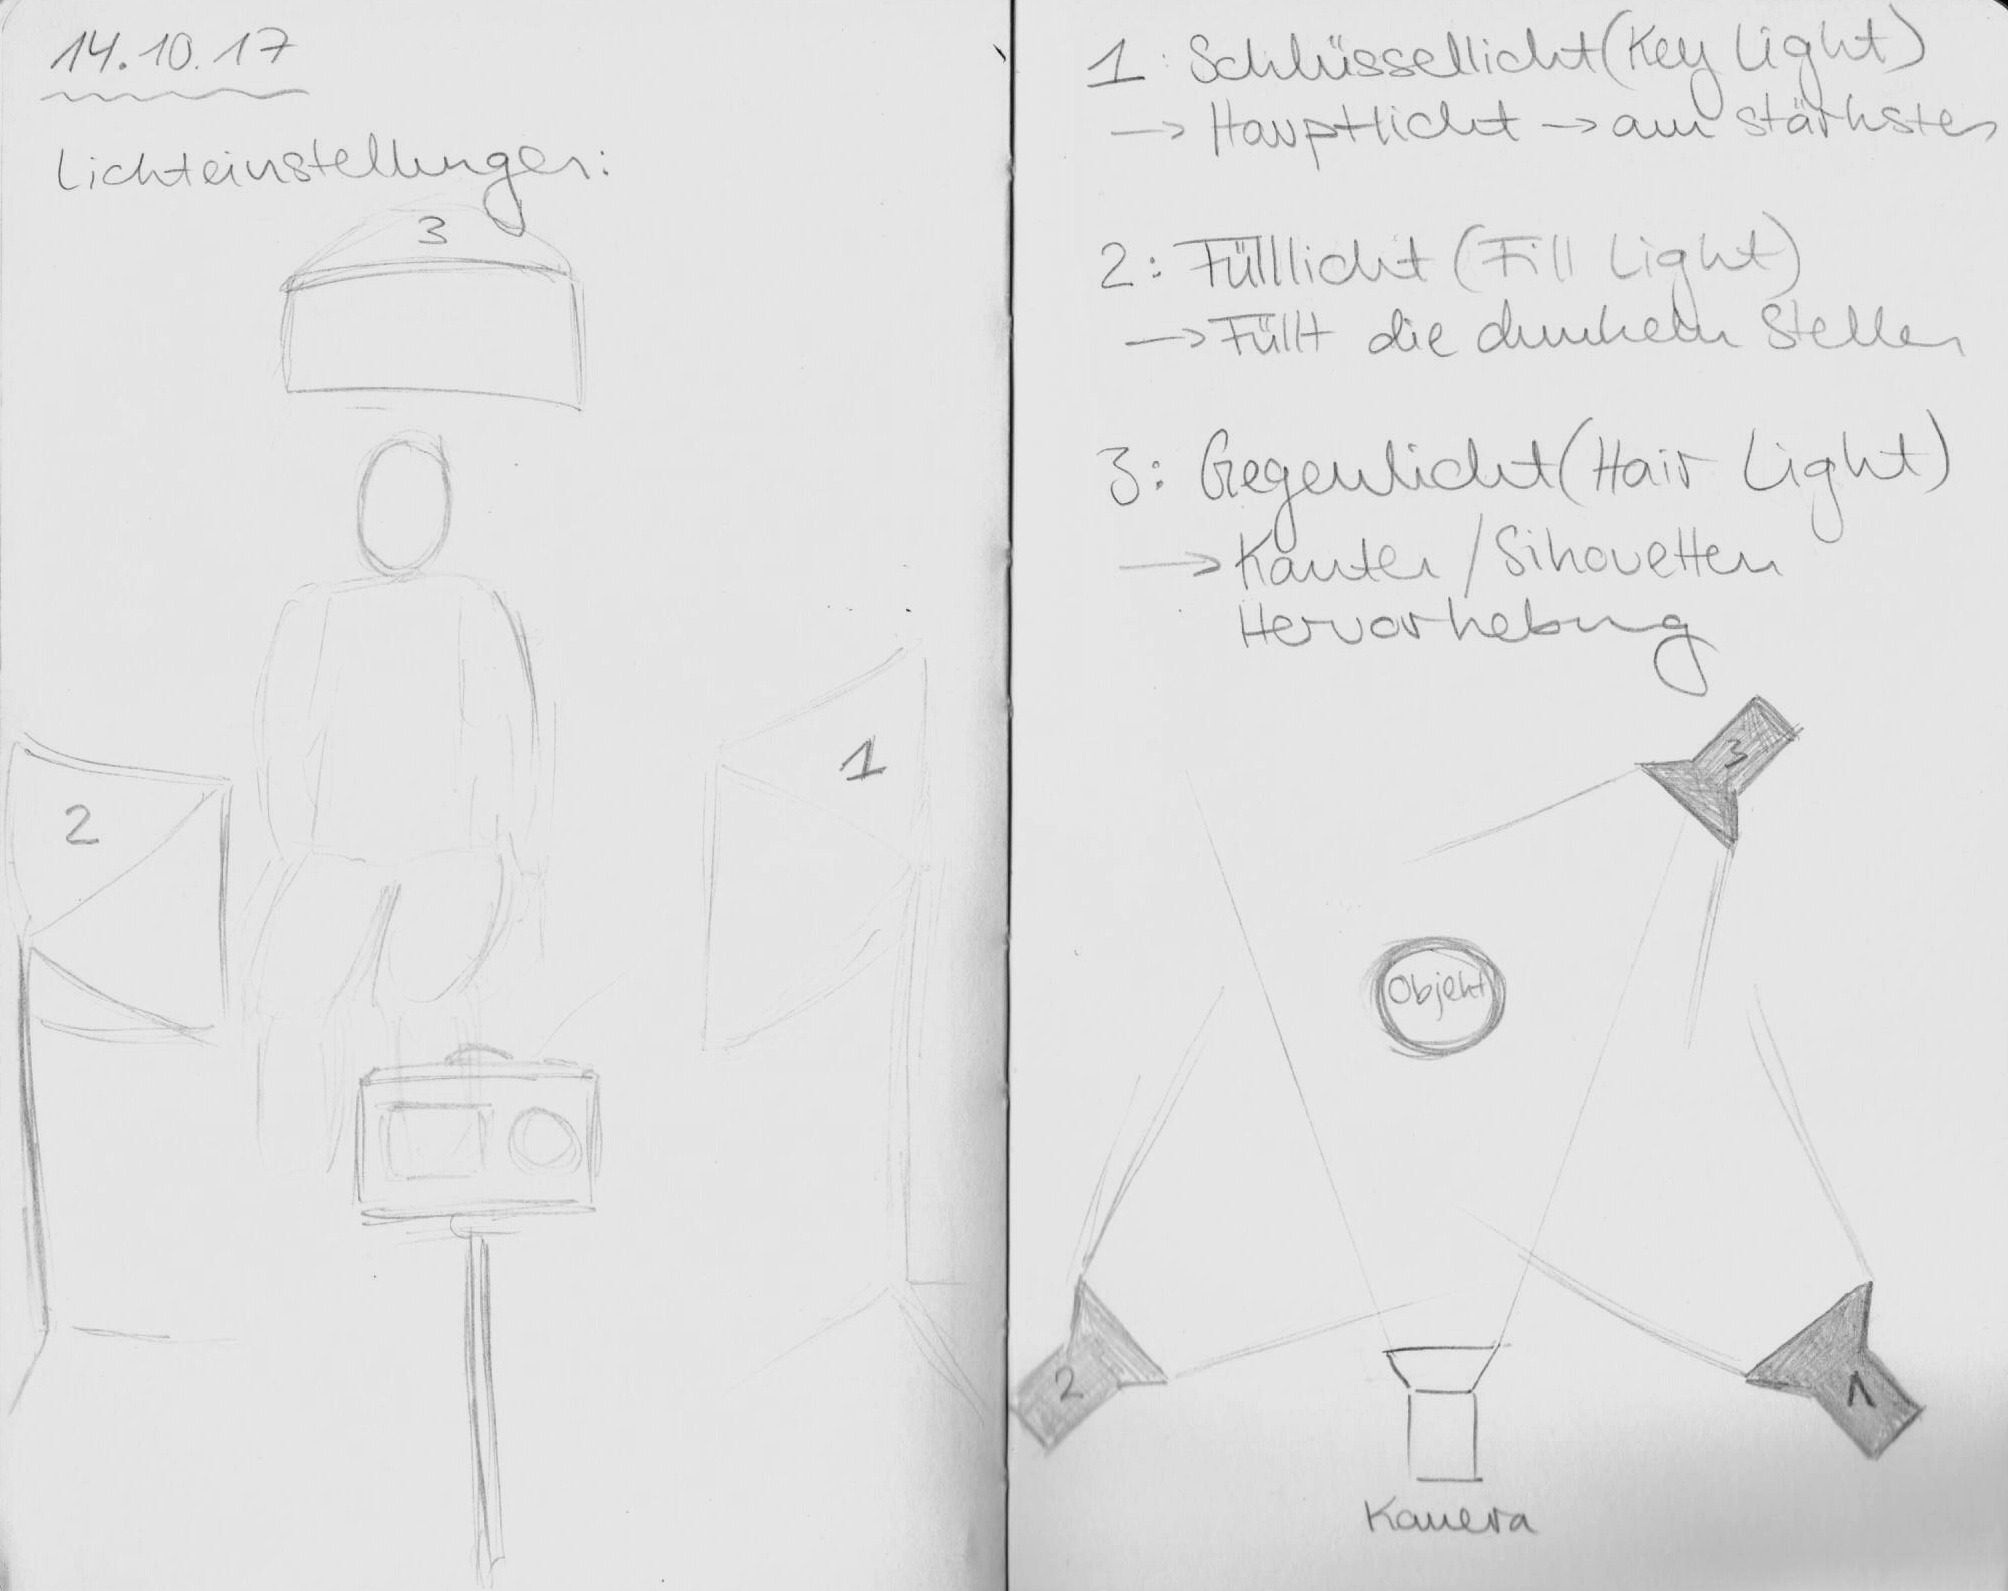 14.10.17
Lichteinstellungen:
3
2
1
1: Schlüssellicht (Key Light)
→ Hauptlicht → am stärksten
2: Fülllicht (Fill Light)
→ Füllt die dunkeln Stellen
3: Gegenlicht (Hair Light)
→ Kanten / Sihouetten
Hervorhebung
3
Objekt
2
1
Kamera